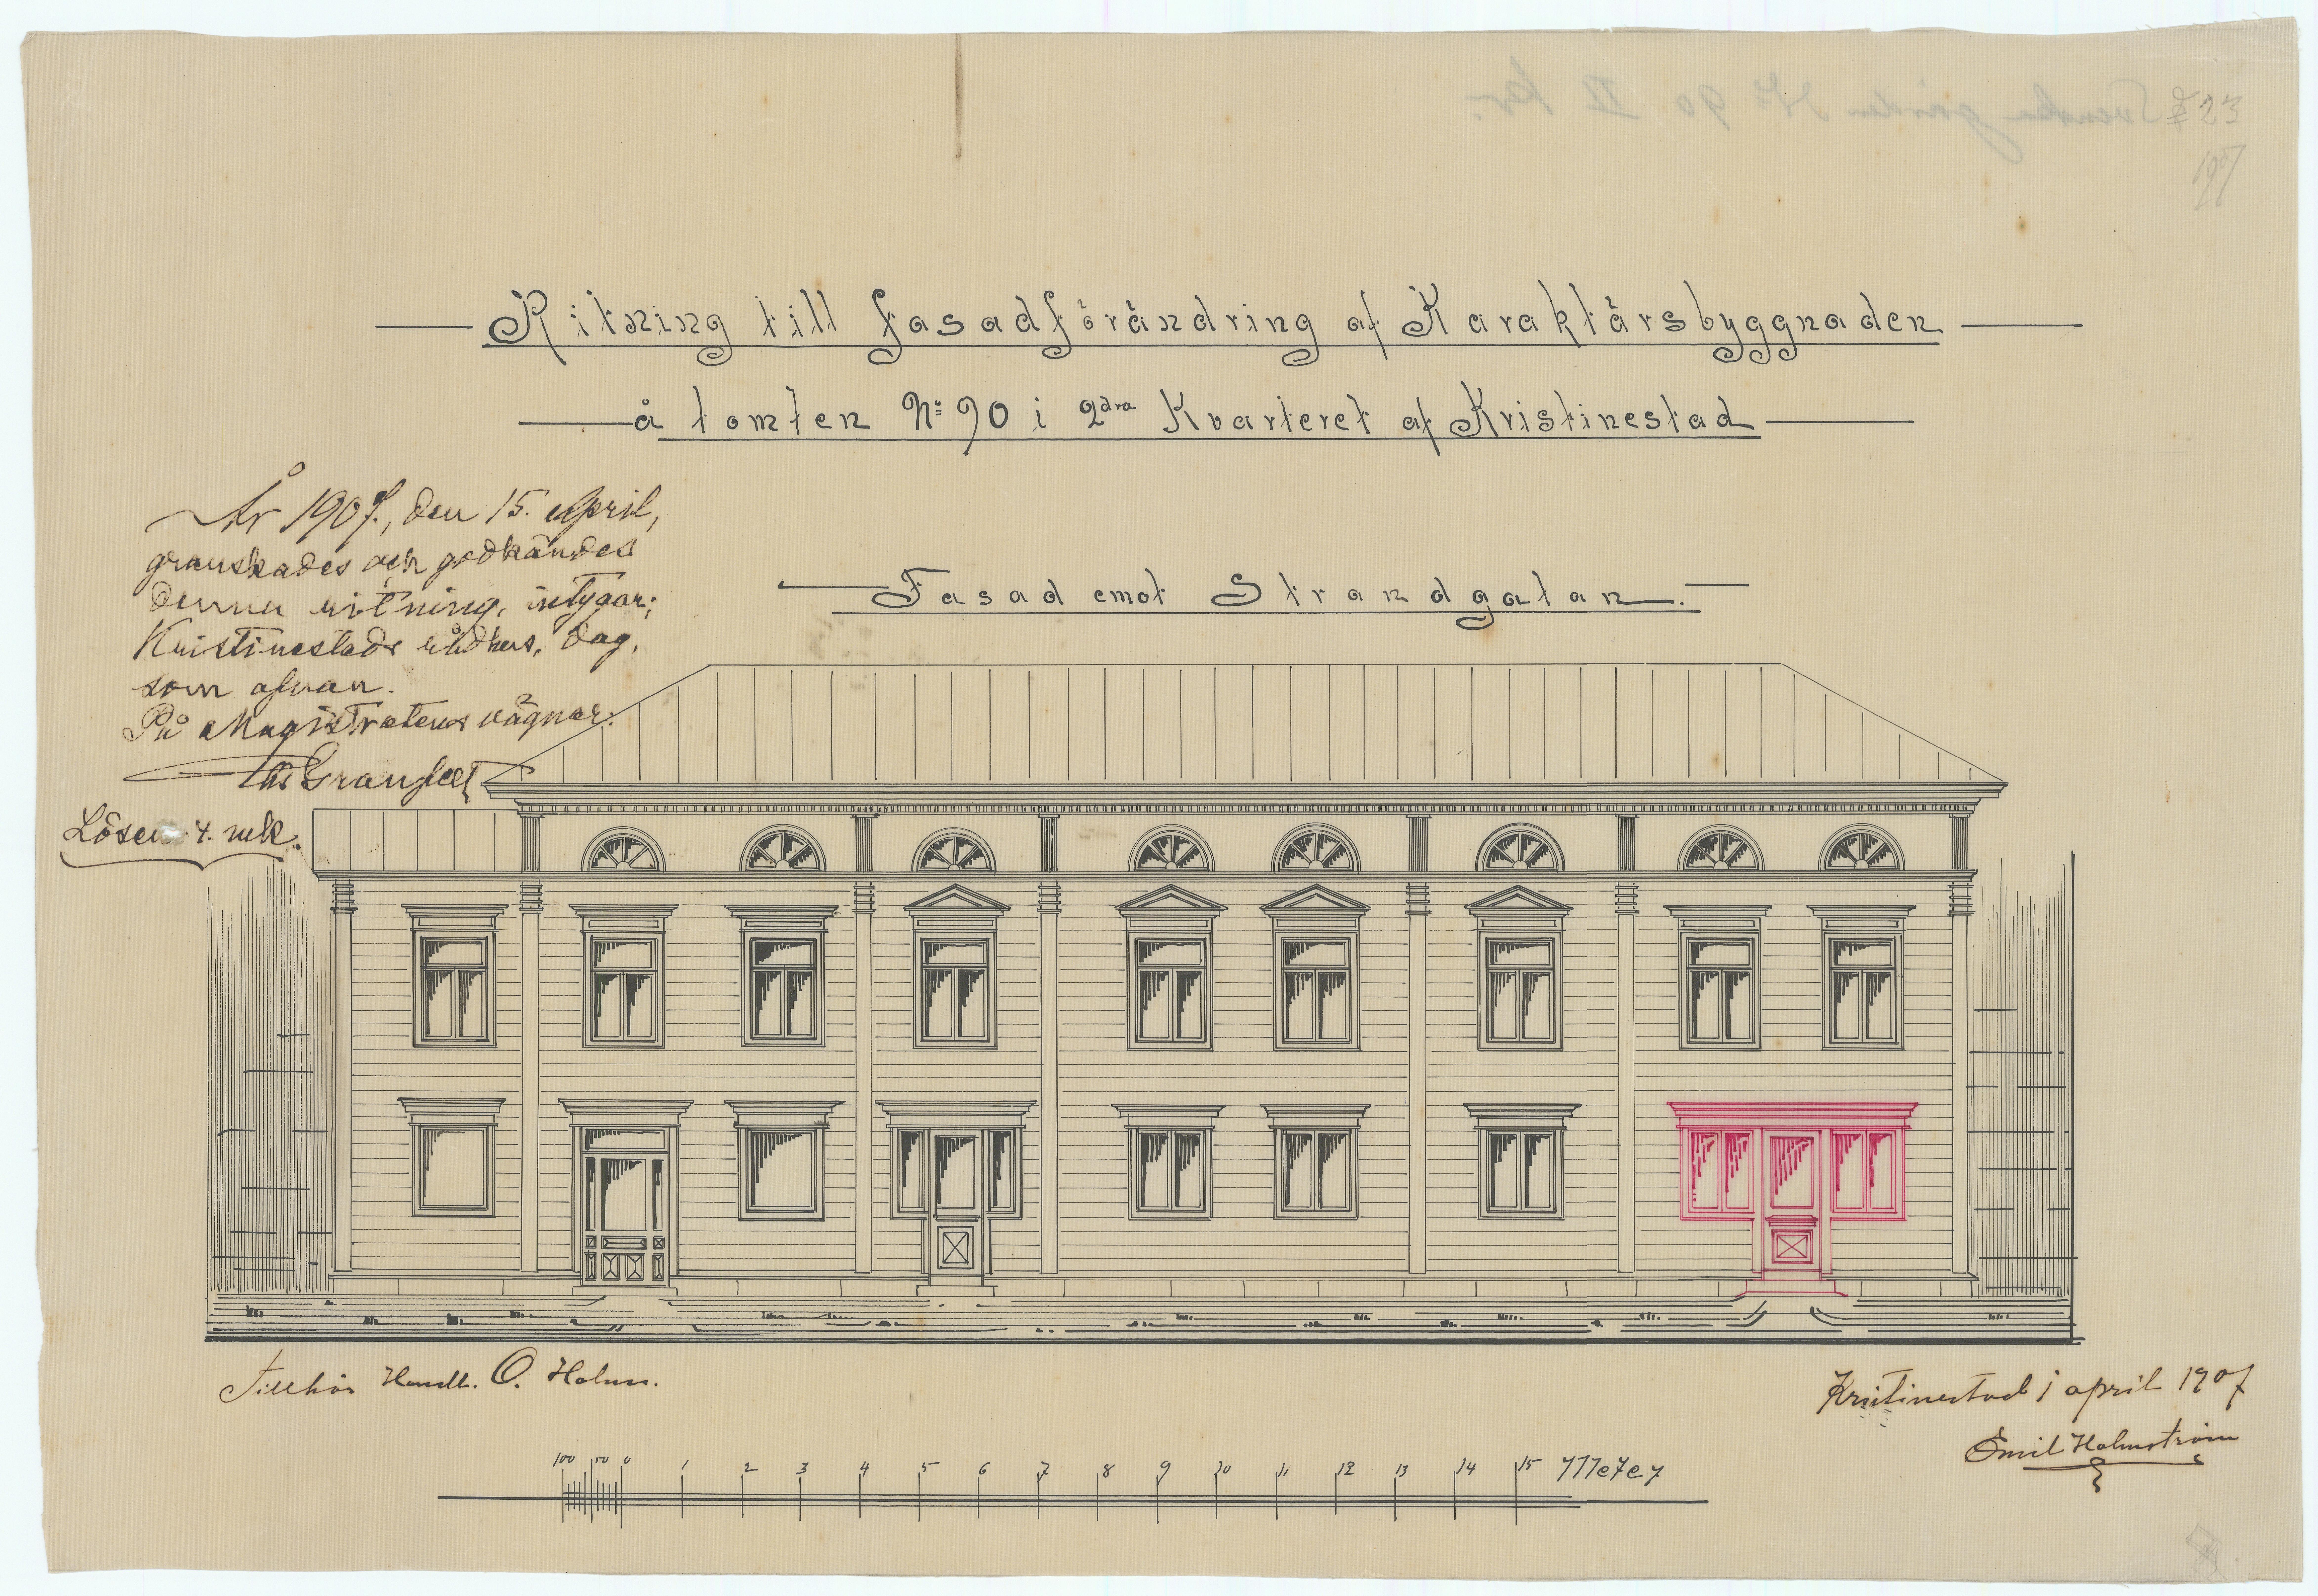 ₤ 23
1907
Ritning till fasadförändring af Karaktärsbyggnaden
å tomten No 90 i 2dra Kvarteret af Kristinestad
År 1907, den 15. april,
granskades och godkändes
denna ritning, intygar;
Kristinestads rådhus, dag,
som ofvan.
På Magistratens vägnar:
Granfelt
Lösen 4. mk.
Fasad emot Strandgatan.
Tillhör Handl. O. Holm.
Kristinestad i april 1907
Emil Holmström
100 50 0 1 2 3 4 5 6 7 8 9 10 11 12 13 14 15 Meter